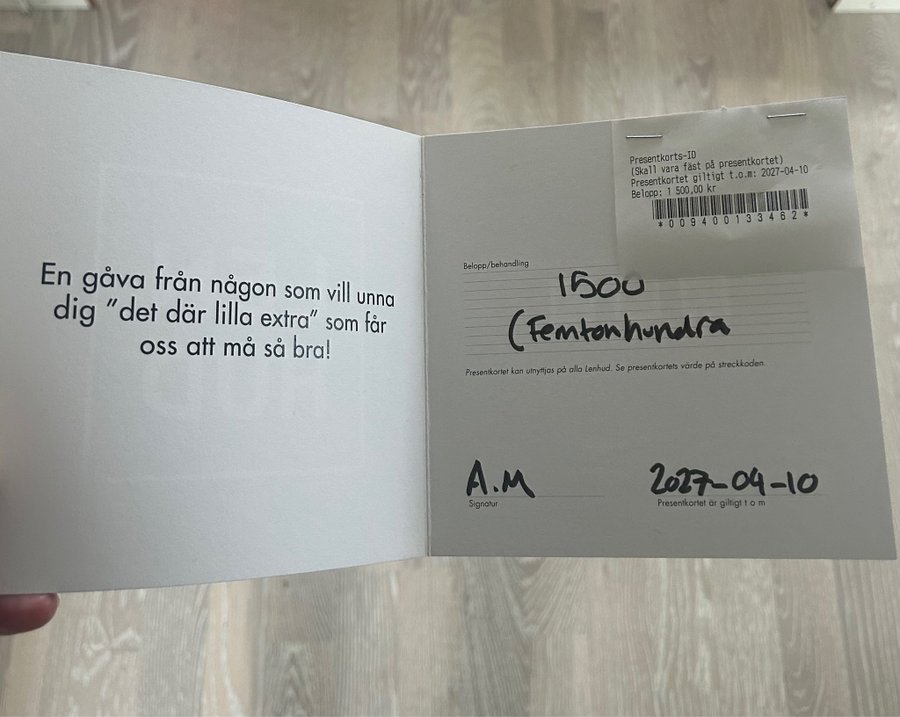 En gåva från någon som vill unna
dig "det där lilla extra" som får
oss att må så bra!
Presentkorts-ID
(Skall vara fäst på presentkortet)
Presentkortet giltigt t.o.m: 2027-04-10
Belopp: 1 500,00 kr
*009400133462*
Belopp/behandling
1500
(Femtonhundra
Presentkortet kan utnyttjas på alla Lenhud. Se presentkortets värde på streckkoden.
A.M
Signatur
2027-04-10
Presentkortet är giltigt t o m